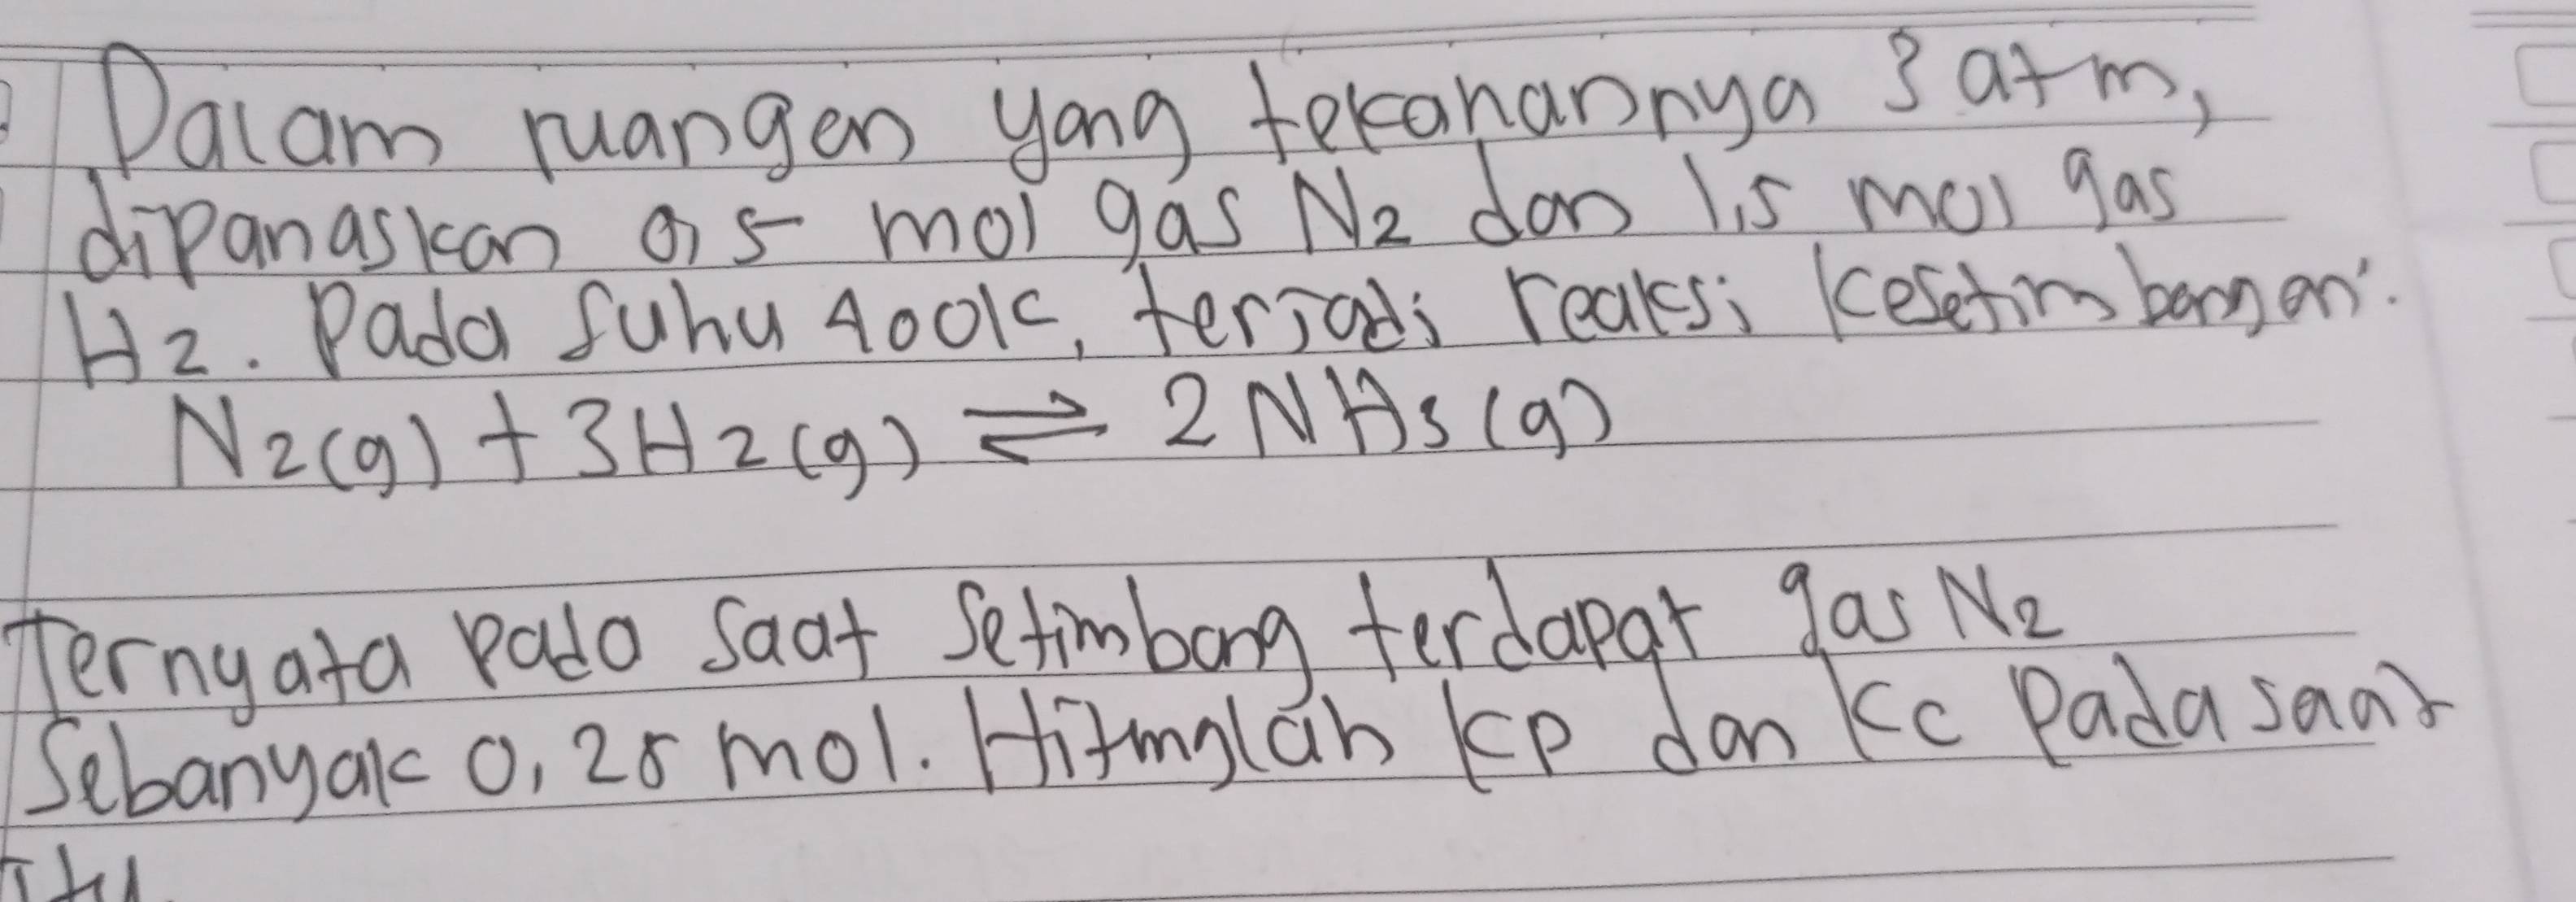 Dalam ruangan yang tekanannya 3 atm,
dipanaskan 0,5 mol gas N2 dan 1,5 mol gas
H2. Pada suhu 400K, terjadi reaksi Kesetimbangan:
N2(g) + 3H2(g) ⇌ 2NH3(g)
Ternyata pada saat Setimbang terdapat gas N2
Sebanyak 0,25 mol. Hitunglah KP dan Kc Pada saat
itu.